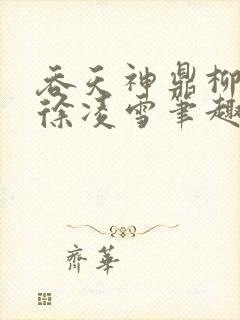 吞天神鼎柳
徐凌雪笔趣
齊華